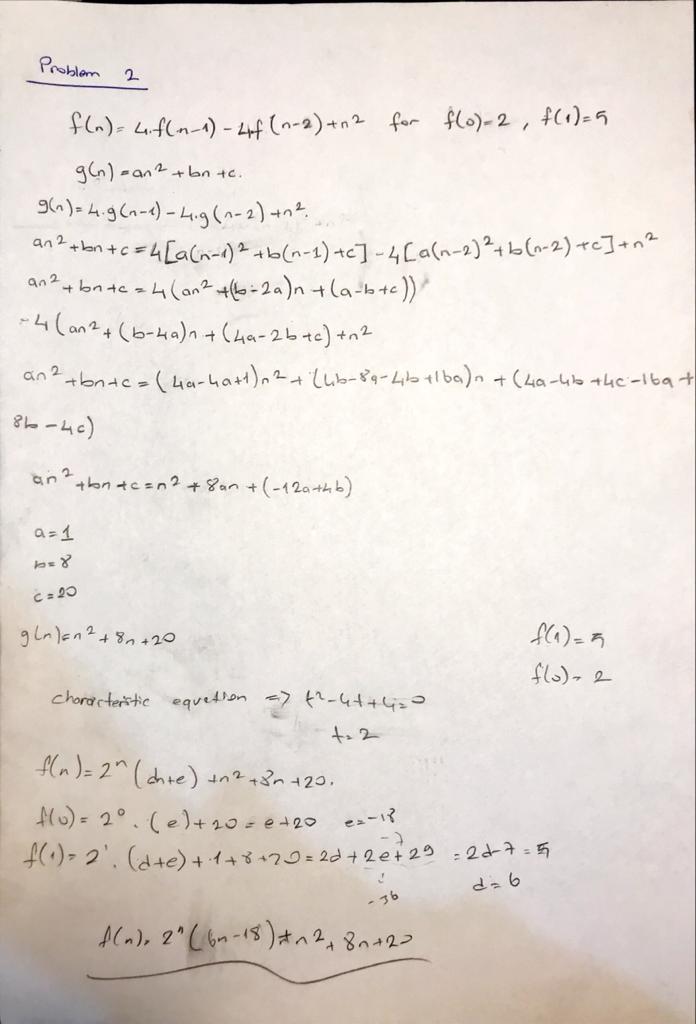 Problem 2
f(n) = 4.f(n-1) - 4f(n-2) + n² for f(0)=2 , f(1)=5
g(n) = an² + bn + c.
g(n) = 4.g(n-1) - 4.g(n-2) + n².
an² + bn + c = 4[a(n-1)² + b(n-1) + c] - 4[a(n-2)² + b(n-2) + c] + n²
an² + bn + c = 4(an² + (b-2a)n + (a-b+c))
-4(an² + (b-4a)n + (4a-2b+c) + n²
an² + bn + c = (4a-4a+1)n² + (4b-8a-4b+16a)n + (4a-4b+4c-16a+
8b-4c)
an² + bn + c = n² + 8an + (-12a+4b)
a = 1
b = 8
c = 20
g(n) = n² + 8n + 20
f(1) = 5
f(0) = 2
characteristic equation => t²-4t+4=0
t = 2
f(n) = 2ⁿ(dn+e) + n² + 8n + 20.
f(0) = 2⁰.(e) + 20 = e + 20 e = -18
-7
f(1) = 2¹.(d+e) + 1 + 8 + 20 = 2d + 2e + 29 = 2d - 7 = 5
-36
d = 6
f(n) = 2ⁿ(6n-18) + n² + 8n + 20